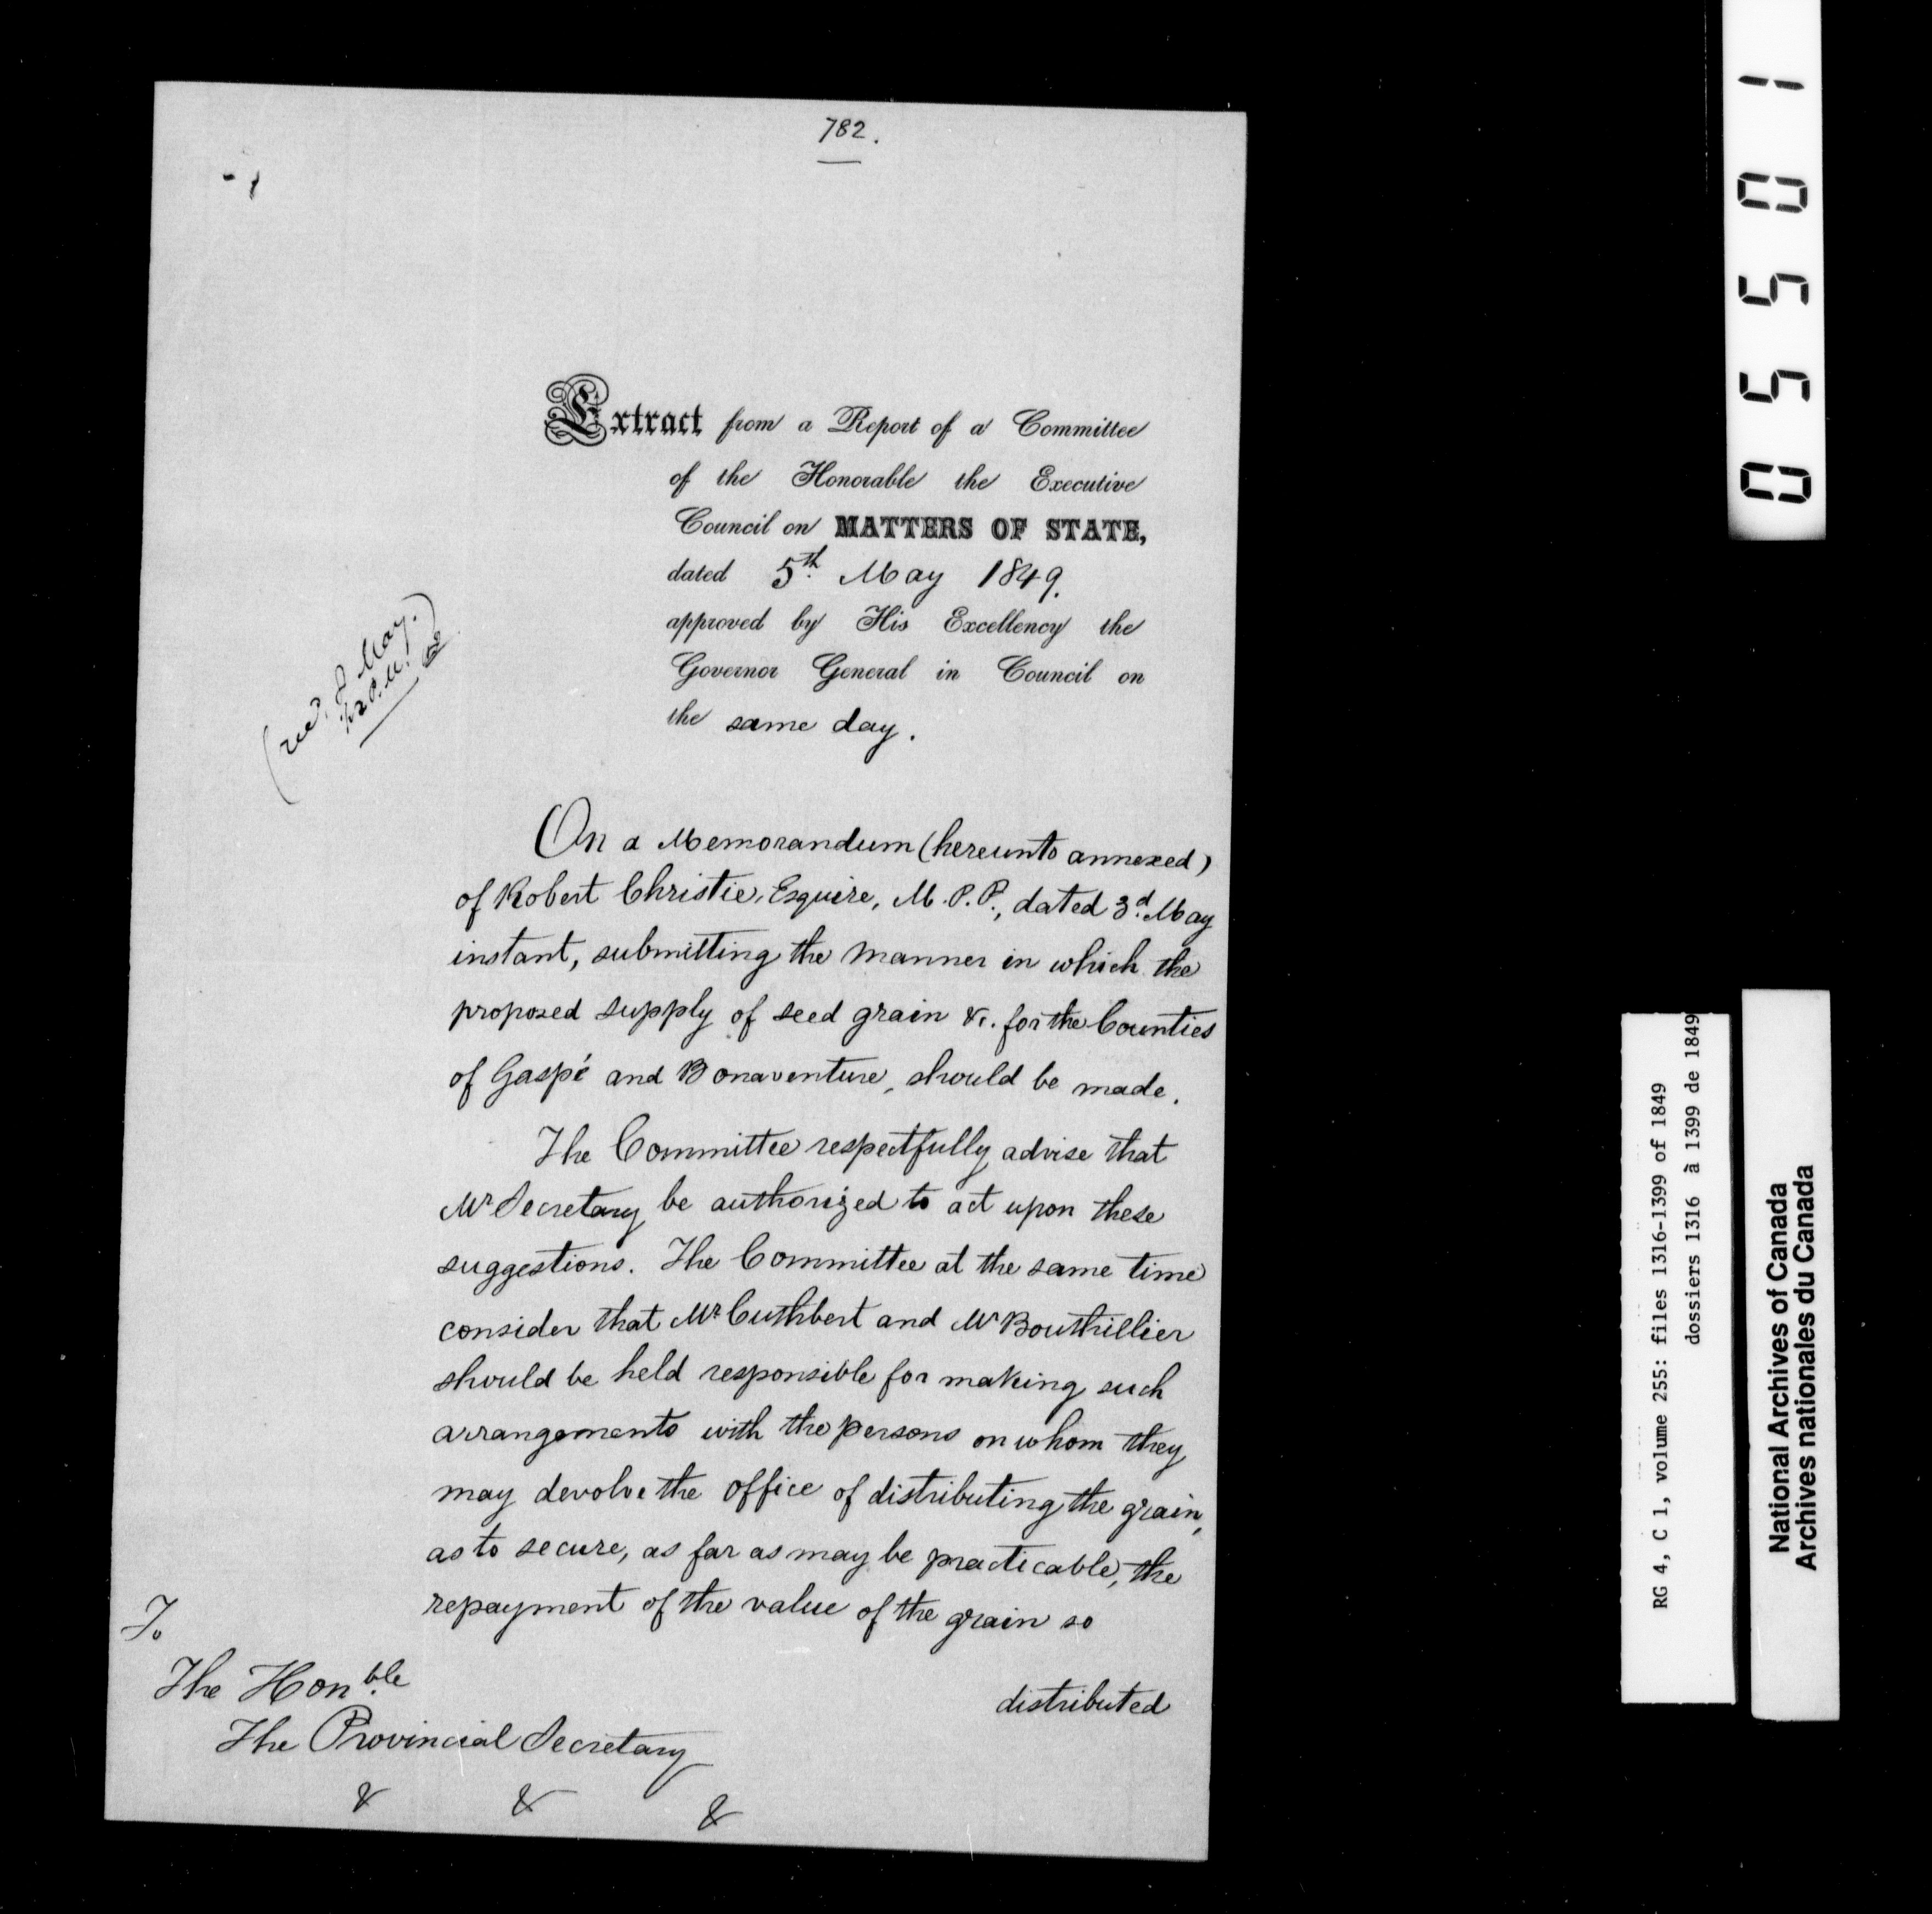 782.
Extract from a Report of a Committee
of the Honorable the Executive
Council on MATTERS OF STATE,
dated 5th May 1849.
approved by His Excellency the
Governor General in Council on
the same day.
May.)
On a Memorandum (hereunto annexed)
of Robert Christie, Esquire, M.P.P., dated 3d May
instant, submitting the manner in which the
proposed supply of seed grain &c. for the Counties
of Gaspé and Bonaventure, should be made.
The Committee respectfully advise that
Mr Secretary be authorized to act upon these
suggestions. The Committee at the same time
consider that Mr Cuthbert and Mr Bouthillier
should be held responsible for making such
arrangements with the persons on whom they
may devolve the office of distributing the grain,
as to secure, as far as may be practicable, the
repayment of the value of the grain so
distributed
To
The Honble
The Provincial Secretary
& & &
05501
RG 4, C 1, volume 255: files 1316-1399 of 1849
dossiers 1316 à 1399 de 1849
National Archives of Canada
Archives nationales du Canada